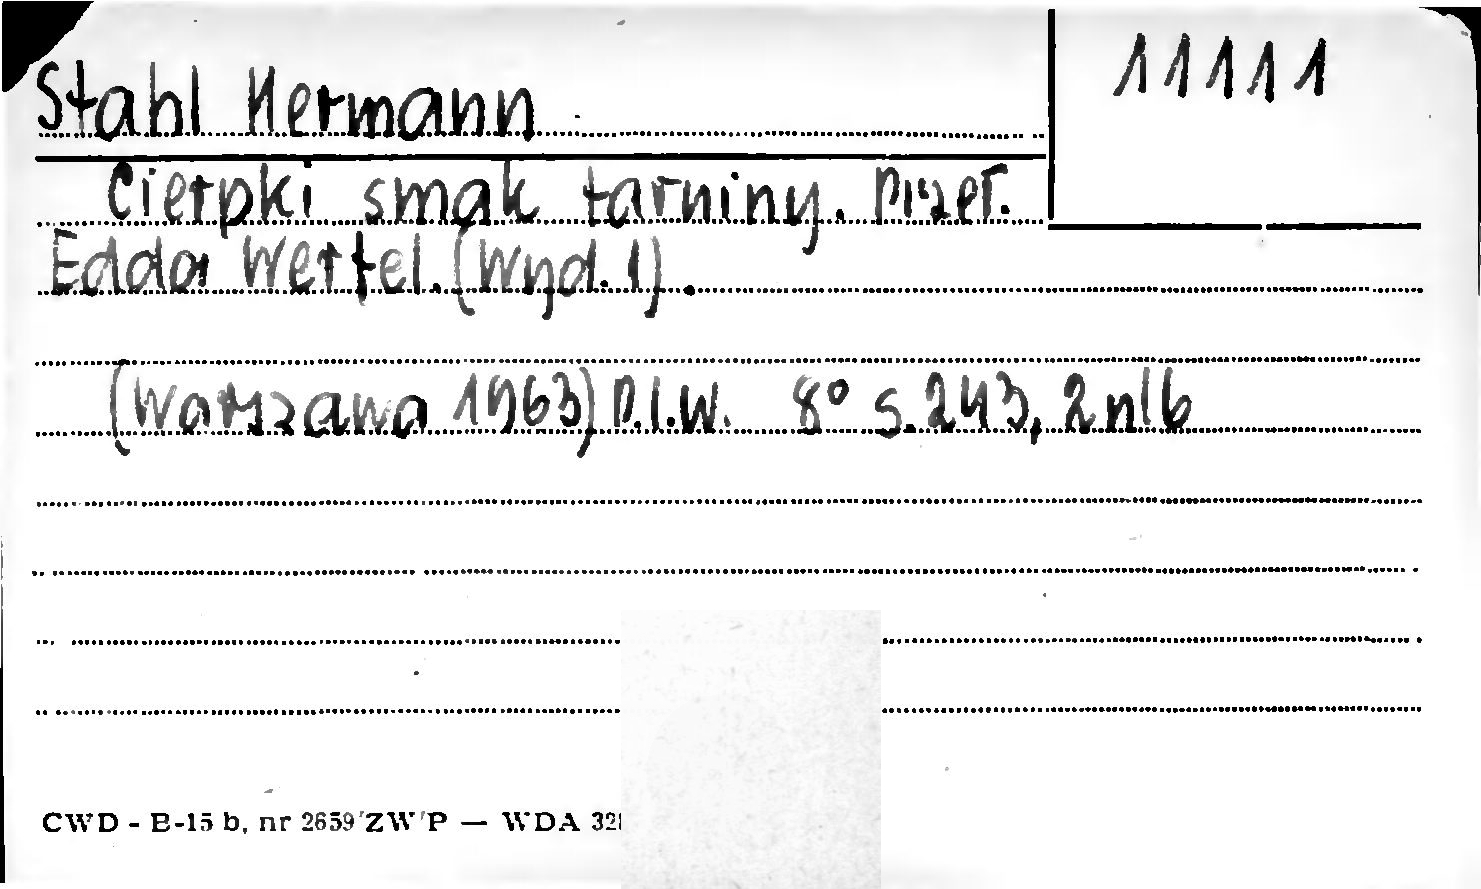 11111
Stahl Hermann
Cierpki smak tarniny. Przeł.
Edda Werfel. (Wyd. 1).
(Warszawa 1963) P.I.W. 8° s. 243, 2 nlb
CWD - E-15 b, nr 2659/ZW/P — WDA 32